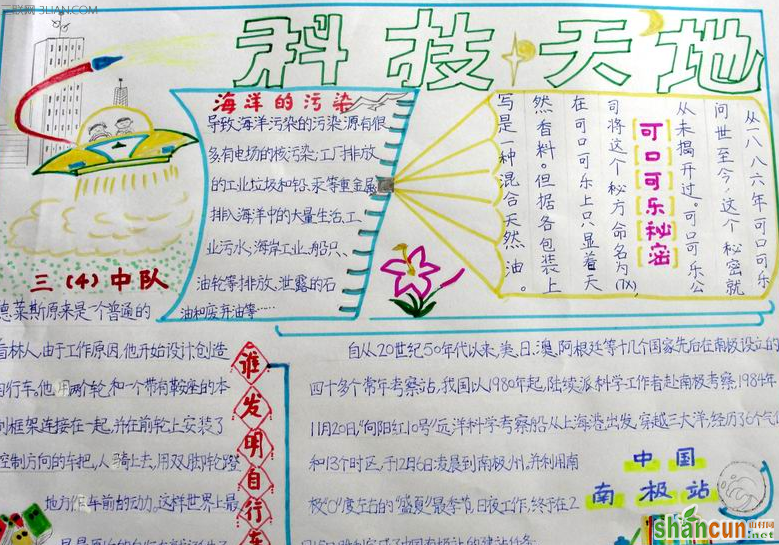 三联网 3LIAN.COM
科技天地
海洋的污染
导致海洋污染的污染源有很
多有电场的核污染;工厂排放
的工业垃圾和铅、汞等重金属
排入海洋中的大量生活、工
业污水;海岸工业、船只、
油轮等排放、泄露的石
油和废弃油等……
可口可乐秘密
从一八八六年可口可乐
问世至今,这个秘密就
从未揭开过。可口可乐公
司将这个秘方命名为(7X),
在可口可乐上只显着天
然香料。但据各包装上
写是一种混合天然油。
三(4)中队
德莱斯原来是一个普通的
看林人,由于工作原因,他开始设计创造
自行车。他用两个轮,和一个带有鞍座的木
制框架连接在一起,并在前轮上安装了
控制方向的车把,人骑上去,用双脚轮蹬
地方作车前的动力。这样世界上最
谁发明自行车
自从20世纪50年代以来,美、日、澳、阿根廷等十几个国家先后在南极设立的
四十多个常年考察站,我国从1980年起,陆续派科学工作者赴南极考察,1984年
11月20日,"向阳红10号"远洋科学考察船从上海港出发,穿越三大洋;经历了6个气
和13个时区,于12月6日凌晨到南极州,并利用南
极"0"度左右的"盛夏"最季节,日夜工作,终于在2
中国
南极站
shancun
山村网
.net